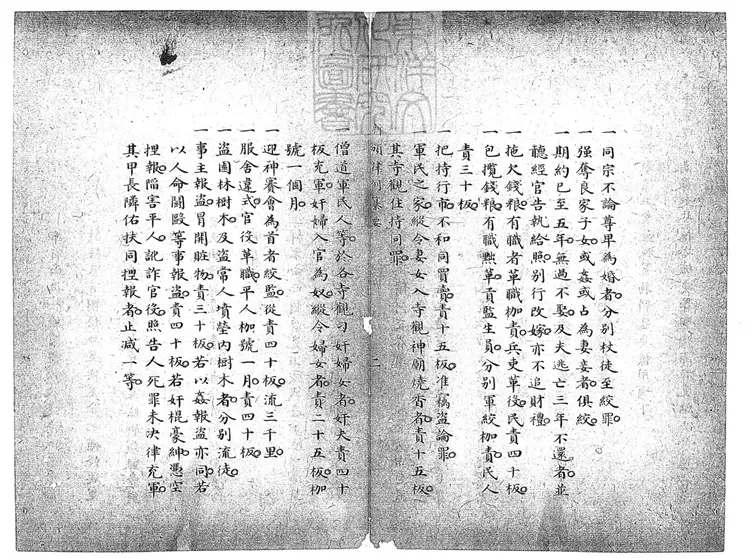 一同宗不論尊卑為婚者分別杖徒至絞罪。
一强奪良家子女或姦或占為妻妾者俱絞。
一期約已至五年無過不娶及夫逃亡三年不還者並
聽經官告執給照別行改嫁亦不追財禮。
一拖欠錢粮有職者革職枷責兵吏革役民責四十板。
一包攬錢粮有職黜革貢監生員分別軍絞枷責民人
責三十板。
一把持行市不和同買賣責十五板准竊盜論罪。
一軍民之家縱令妻女入寺觀神廟燒香者責十五板。
其寺觀住持同罪。
二
一僧道軍民人等於各寺觀刁奸婦女者奸夫責四十
板充軍奸婦入官為奴縱令婦女者責二十五板枷
號一個月。
一迎神賽會為首者絞監從責四十板流三千里。
一服舍違式官役革職平人枷號一月責四十板。
一盜園林樹木及盜常人墳塋內樹木者分別流徒。
一事主報盜冒開賍物責三十板若以姦報盜亦同若
以人命鬬毆等事報盜責四十板若奸棍豪紳憑空
捏報陷害平人訛詐官役照告人死罪未決律充軍。
其甲長隣佑扶同捏報者止减一等。